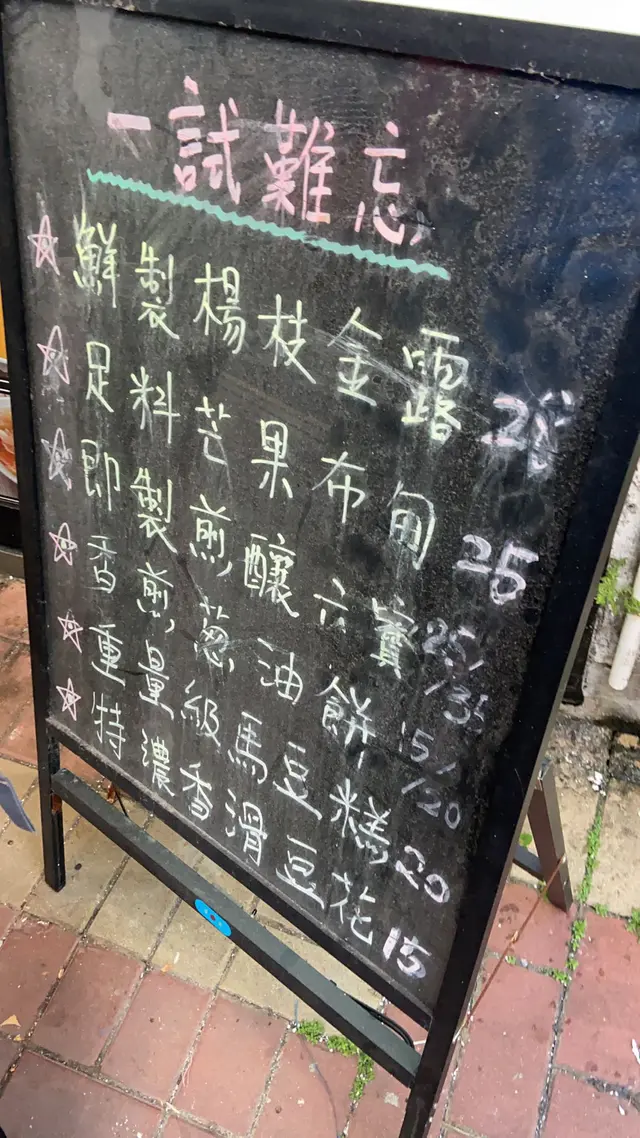 一試難忘
鮮製楊枝金露 28
足料芒果布甸 25
即製煎釀六寶 25/ /35
香煎葱油餅 15/ /20
重量級馬豆糕 20
特濃香滑豆花 15